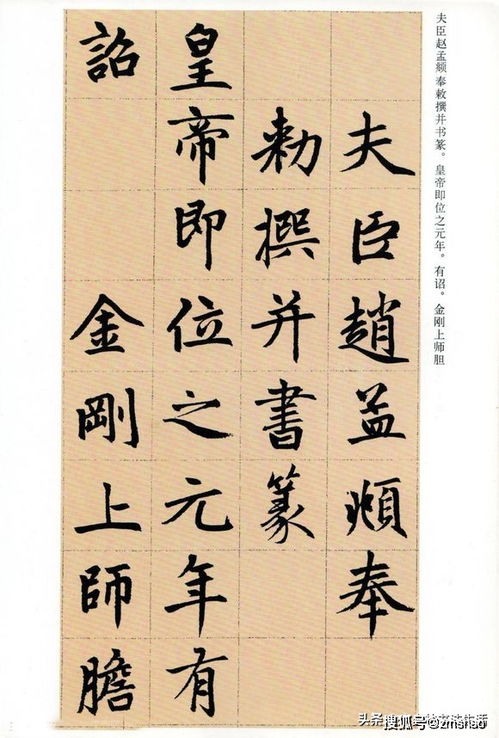 夫臣赵孟頫奉敕撰并书篆。皇帝即位之元年。有诏。金刚上师胆
夫臣趙孟頫奉
勅撰并書篆
皇帝即位之元年有
詔 金剛上師膽
搜狐号@zmshso